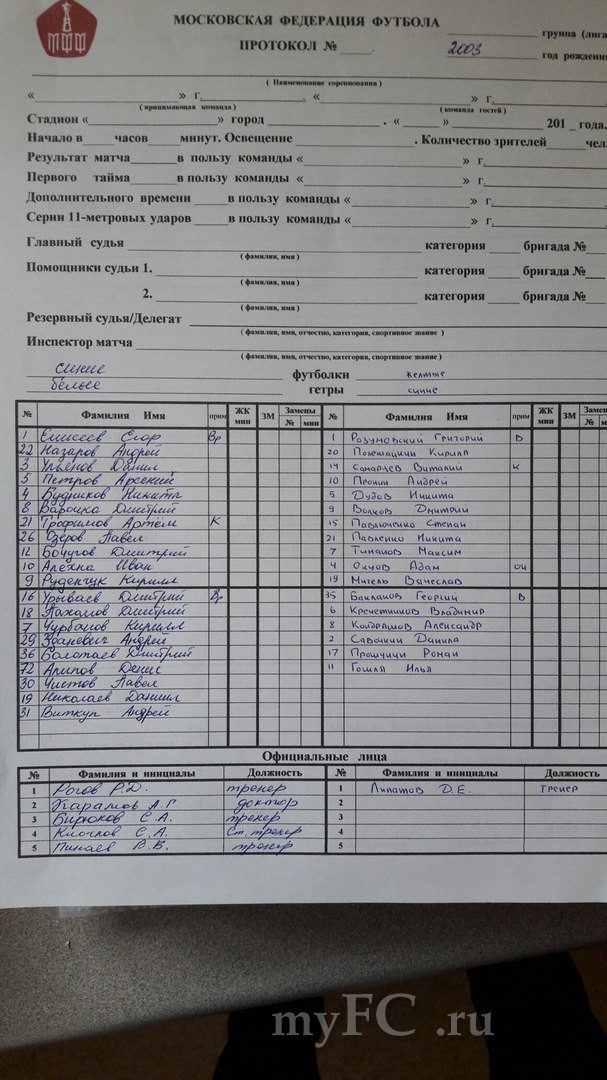 МФФ
МОСКОВСКАЯ ФЕДЕРАЦИЯ ФУТБОЛА
группа (лига
ПРОТОКОЛ № 2003 год рождения
( Наименование соревнования )
« » г. « » г.
( принимающая команда ) ( команда гостей )
Стадион « » город . « » 201 года.
Начало в часов минут. Освещение . Количество зрителей чел.
Результат матча в пользу команды « » г.
Первого тайма в пользу команды « » г.
Дополнительного времени в пользу команды « » г.
Серии 11-метровых ударов в пользу команды « » г.
Главный судья категория бригада №
( фамилия, имя )
Помощники судьи 1. категория бригада №
( фамилия, имя )
2. категория бригада №
( фамилия, имя )
Резервный судья/Делегат
( фамилия, имя, отчество, категория, спортивное звание )
Инспектор матча
( фамилия, имя, отчество, категория, спортивное звание )
синие футболки желтые
белые гетры синие
№ Фамилия Имя прим ЖК мин ЗМ Замены № мин № Фамилия Имя прим ЖК мин ЗМ Замены № ми
1 Елисеев Егор Вр 1 Разумовский Григорий В
22 Назаров Андрей 20 Кирилл
3 Ульянов Данил 14 Самарцев Виталий К
5 Петров Арсений 10 Пронин Андрей
4 Будников Никита 5 Дубов Никита
8 Дмитрий 9 Волков Дмитрий
21 Трофимов Артём К 15 Павлюченко Степан
26 Озеров Павел 21 Павленко Никита
12 Бочугов Дмитрий 7 Максим
10 Алехна Иван 4 Окуов Адам
9 Руденчук Кирилл 19 Мигель Вячеслав
16 Урываев Дмитрий Вр 35 Бакланов Георгий В
18 Пахомов Дмитрий 6 Кречетников Владимир
7 Чурбанов Кирилл 8 Кондрашов Александр
29 Жданевич Андрей 2 Савочкин Данила
36 Дмитрий 17 Прошунин Роман
72 Арипов Денис 11 Гошля Илья
30 Чистов Павел
19 Николаев Даниил
31 Виткуп Андрей
Официальные лица
№ Фамилия и инициалы Должность № Фамилия и инициалы Должность
1 Рогов Р.Д. тренер 1 Липатов Д.Е. тренер
2 Харламов А.Г доктор 2
3 Бирюков С.А. тренер 3
4 Клочков С.А. Ст. тренер 4
5 Пинаев В.В. тренер 5
myFC .ru